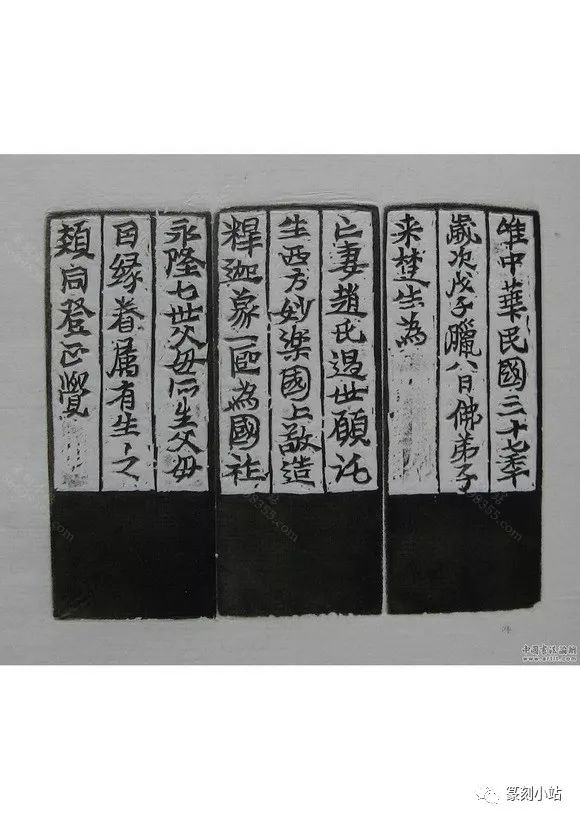 惟中華民國三十七秊
歲次戊子臘八日佛弟子
来楚生為
亡妻趙氏過世願託
生西方妙樂國上敬造
釋迦象一區為國祚
永隆七世父母所生父母
因緣眷屬有生〻之
類同登正覺
中國書法論壇
篆刻小站